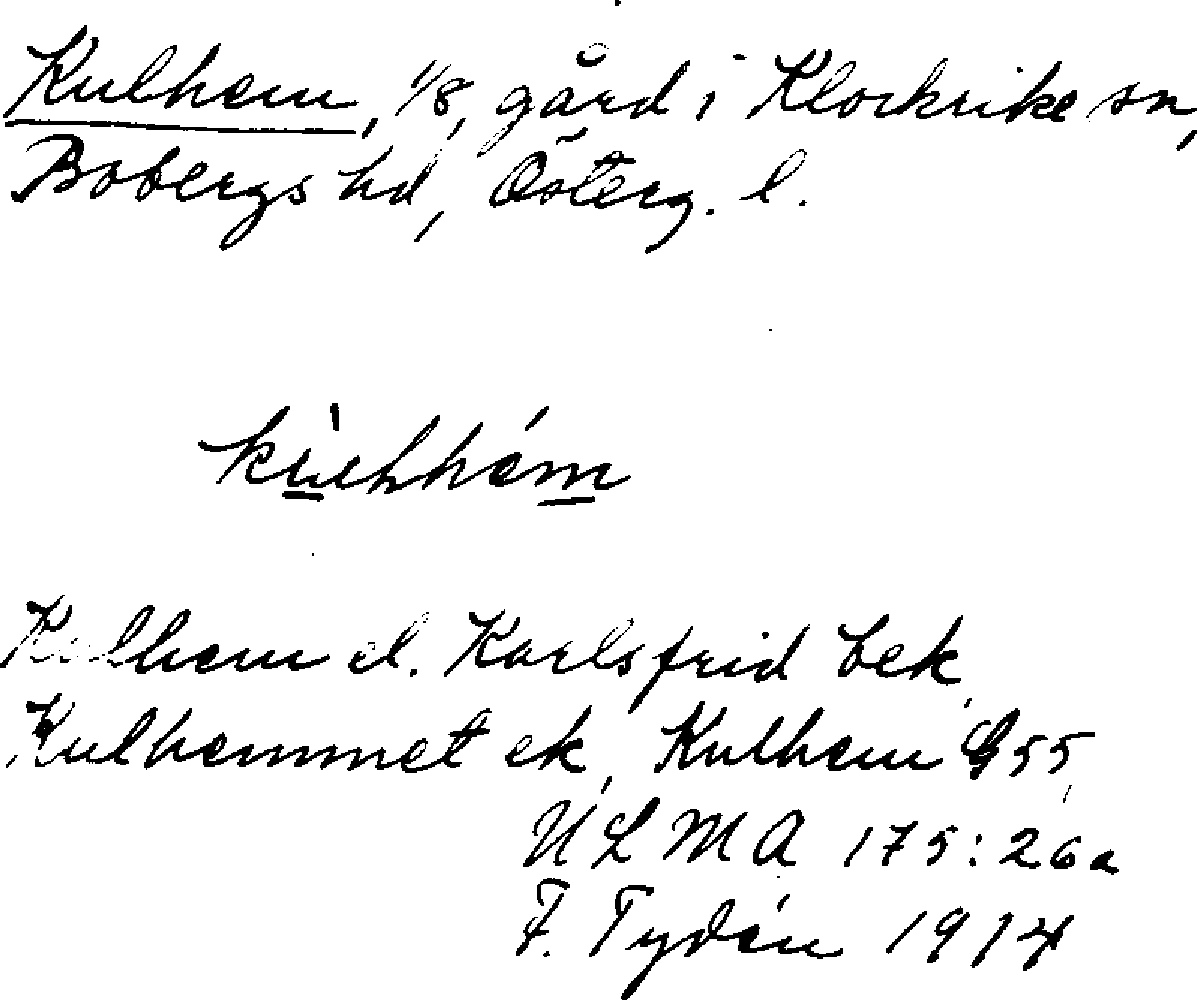 Kulhem, 1/8, gård i Klockrike sn,
Bobergs hd, Österg. l.
Kulhem el. Karlsfrid bek
Kulhemmet ek, Kulhem G55,
ULMA 175:26a
F. Tydén 1914